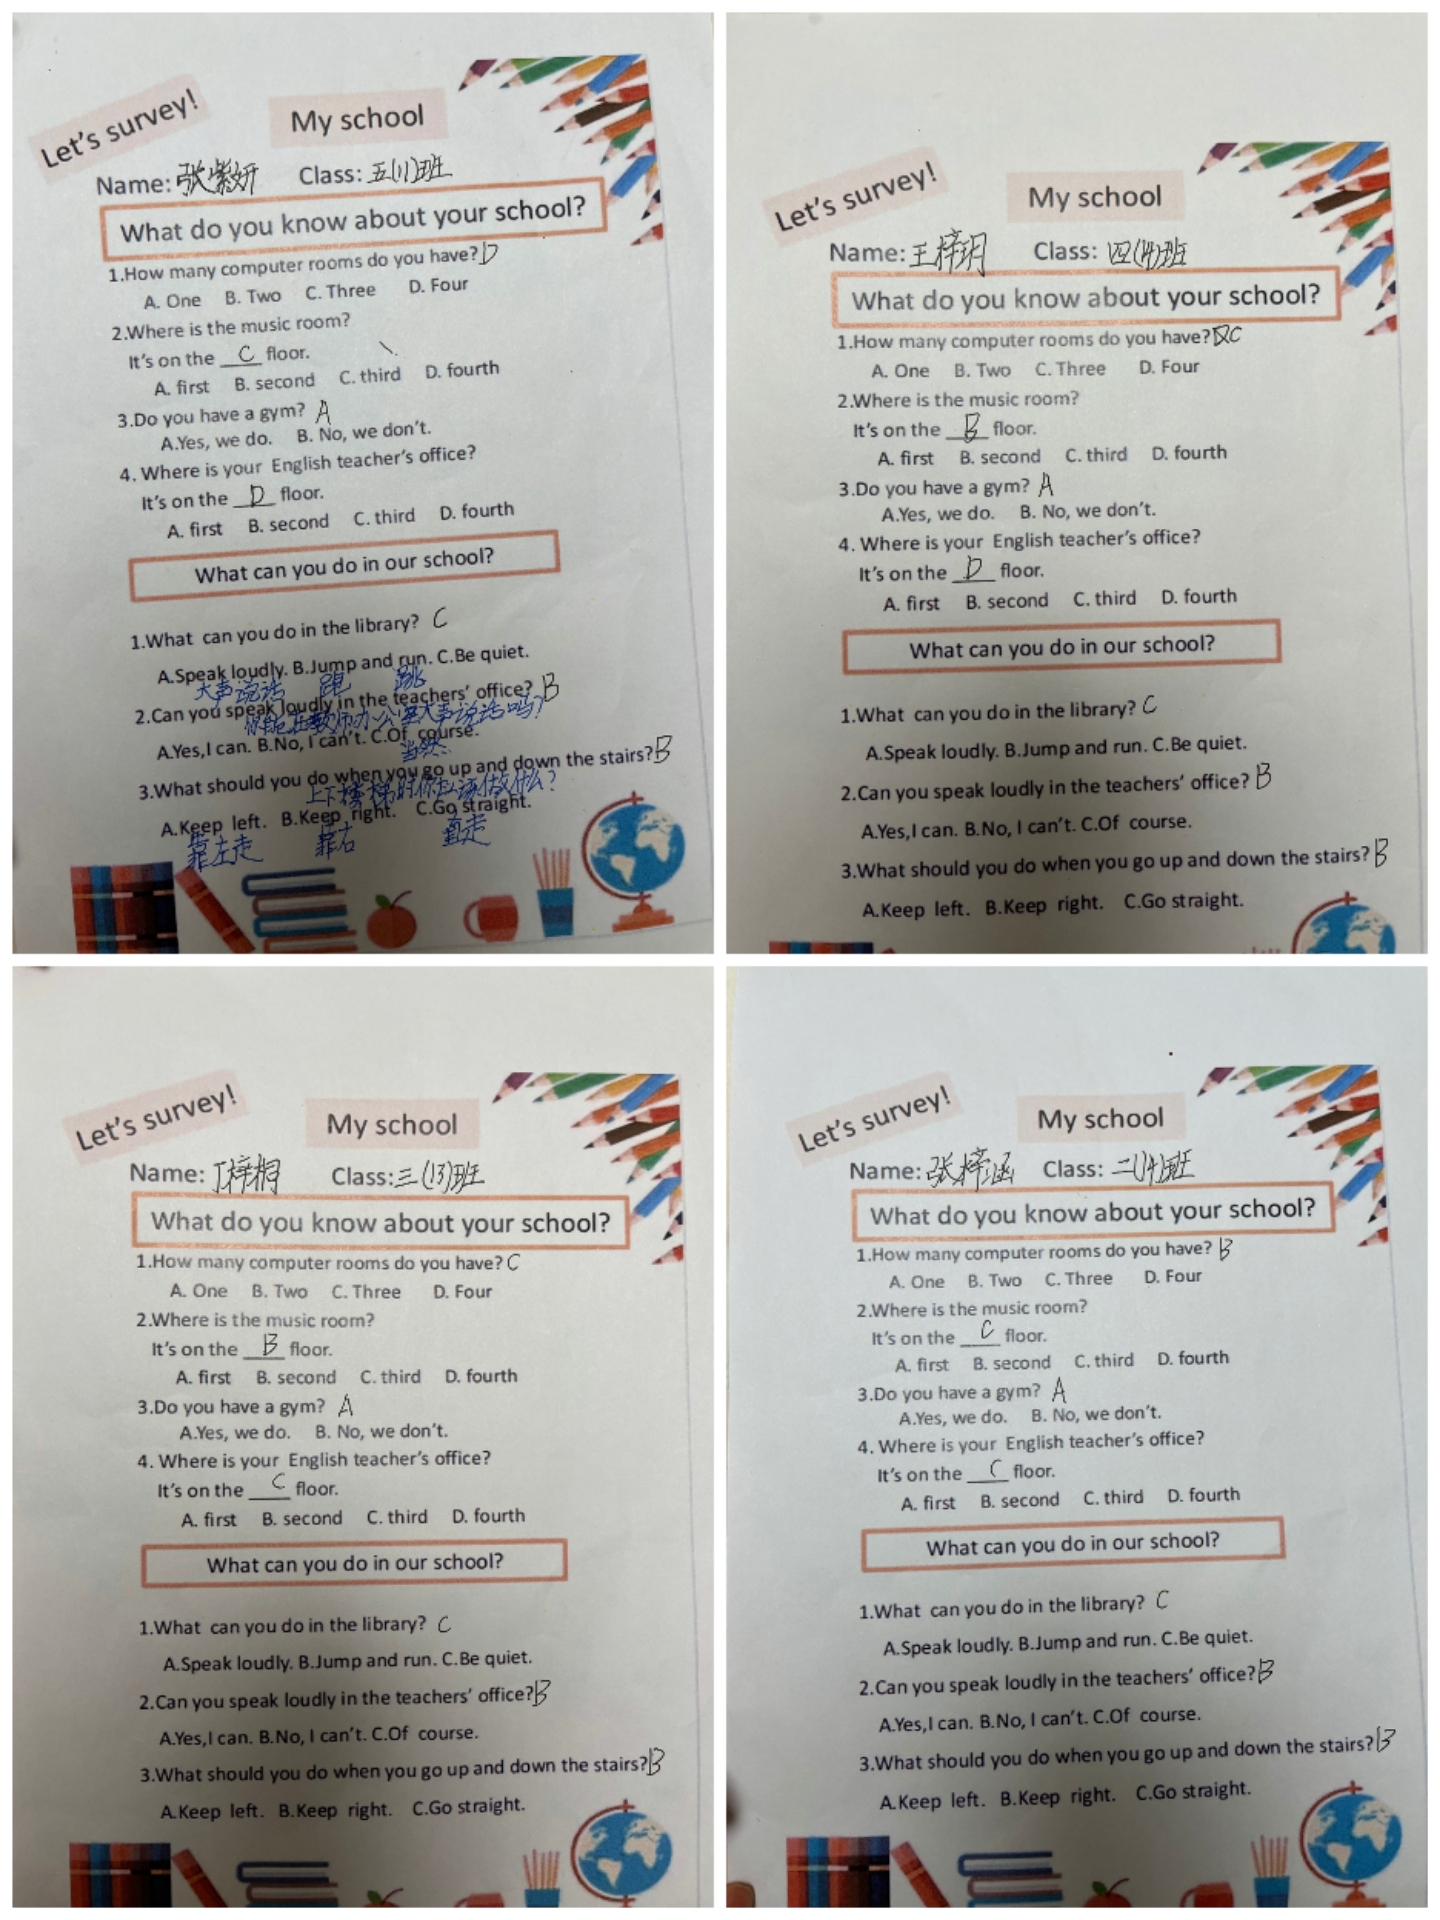 Let's survey!
My school
Name: 张紫妍 Class: 五(11)班
What do you know about your school?
1.How many computer rooms do you have? D
A. One B. Two C. Three D. Four
2.Where is the music room?
It's on the C floor.
A. first B. second C. third D. fourth
3.Do you have a gym? A
A.Yes, we do. B. No, we don't.
4. Where is your English teacher's office?
It's on the D floor.
A. first B. second C. third D. fourth
What can you do in our school?
1.What can you do in the library? C
A.Speak loudly. B.Jump and run. C.Be quiet.
大声说话 跑 跳
2.Can you speak loudly in the teachers' office? B
你能在教师办公室大声说话吗?
A.Yes,I can. B.No, I can't. C.Of course.
当然
3.What should you do when you go up and down the stairs? B
上下楼梯时你应该做什么?
A.Keep left. B.Keep right. C.Go straight.
靠左走 靠右 直走
Let's survey!
My school
Name: 王梓玥 Class: 四(14)班
What do you know about your school?
1.How many computer rooms do you have? C
A. One B. Two C. Three D. Four
2.Where is the music room?
It's on the B floor.
A. first B. second C. third D. fourth
3.Do you have a gym? A
A.Yes, we do. B. No, we don't.
4. Where is your English teacher's office?
It's on the D floor.
A. first B. second C. third D. fourth
What can you do in our school?
1.What can you do in the library? C
A.Speak loudly. B.Jump and run. C.Be quiet.
2.Can you speak loudly in the teachers' office? B
A.Yes,I can. B.No, I can't. C.Of course.
3.What should you do when you go up and down the stairs? B
A.Keep left. B.Keep right. C.Go straight.
Let's survey!
My school
Name: 丁梓桐 Class:三(13)班
What do you know about your school?
1.How many computer rooms do you have? C
A. One B. Two C. Three D. Four
2.Where is the music room?
It's on the B floor.
A. first B. second C. third D. fourth
3.Do you have a gym? A
A.Yes, we do. B. No, we don't.
4. Where is your English teacher's office?
It's on the C floor.
A. first B. second C. third D. fourth
What can you do in our school?
1.What can you do in the library? C
A.Speak loudly. B.Jump and run. C.Be quiet.
2.Can you speak loudly in the teachers' office? B
A.Yes,I can. B.No, I can't. C.Of course.
3.What should you do when you go up and down the stairs? B
A.Keep left. B.Keep right. C.Go straight.
Let's survey!
My school
Name: 张梓涵 Class: 二(14)班
What do you know about your school?
1.How many computer rooms do you have? B
A. One B. Two C. Three D. Four
2.Where is the music room?
It's on the C floor.
A. first B. second C. third D. fourth
3.Do you have a gym? A
A.Yes, we do. B. No, we don't.
4. Where is your English teacher's office?
It's on the C floor.
A. first B. second C. third D. fourth
What can you do in our school?
1.What can you do in the library? C
A.Speak loudly. B.Jump and run. C.Be quiet.
2.Can you speak loudly in the teachers' office? B
A.Yes,I can. B.No, I can't. C.Of course.
3.What should you do when you go up and down the stairs? B
A.Keep left. B.Keep right. C.Go straight.